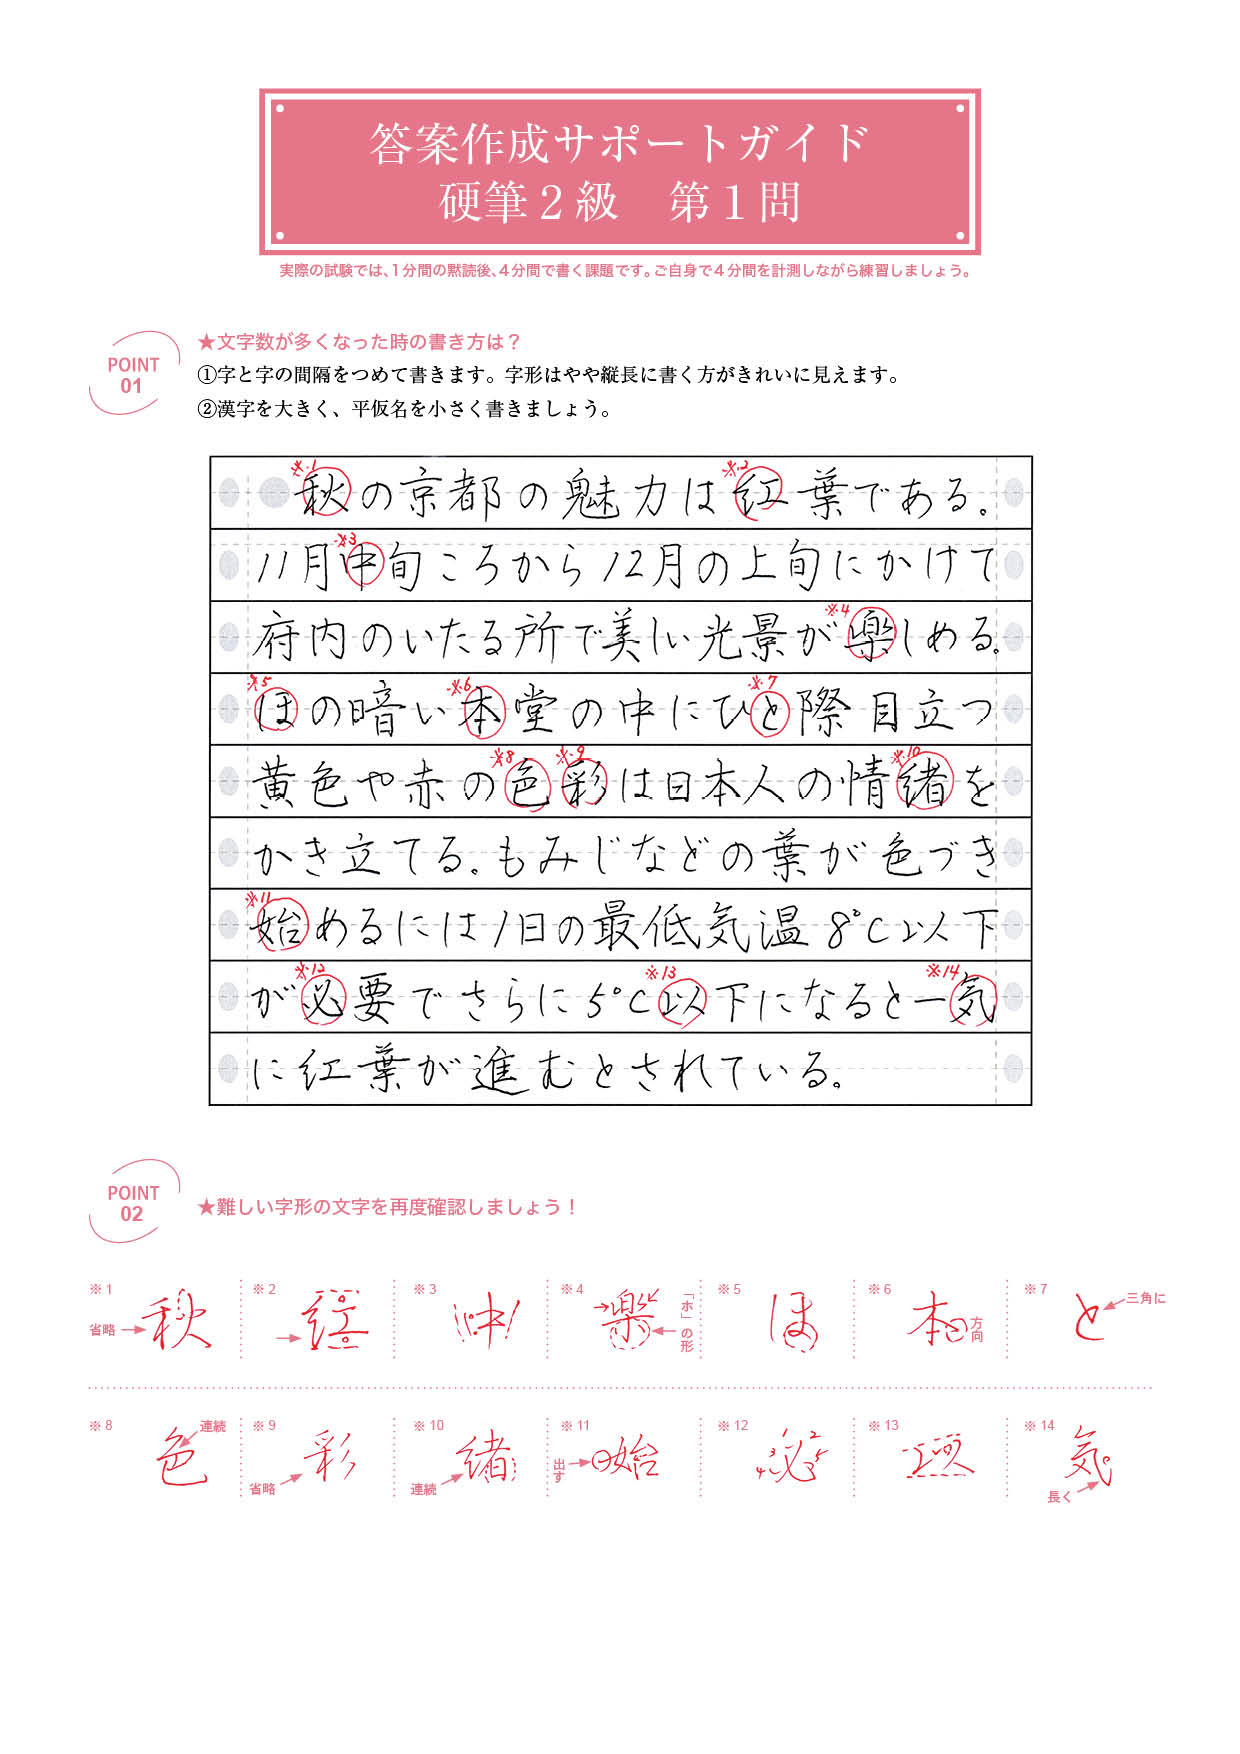 答案作成サポートガイド
硬筆2級　第1問
実際の試験では、1分間の黙読後、4分間で書く課題です。ご自身で4分間を計測しながら練習しましょう。
POINT
01
★文字数が多くなった時の書き方は？
①字と字の間隔をつめて書きます。字形はやや縦長に書く方がきれいに見えます。
②漢字を大きく、平仮名を小さく書きましょう。
※1 ※2
秋の京都の魅力は紅葉である。
※3
11月中旬ころから12月の上旬にかけて
※4
府内のいたる所で美しい光景が楽しめる。
※5 ※6 ※7
ほの暗い本堂の中にひと際目立つ
※8 ※9 ※10
黄色や赤の色彩は日本人の情緒を
かき立てる。もみじなどの葉が色づき
※11
始めるには1日の最低気温8℃以下
※12 ※13 ※14
が必要でさらに5℃以下になると一気
に紅葉が進むとされている。
POINT
02
★難しい字形の文字を再度確認しましょう！
※1 省略 秋
※2 紅
※3 中
※4 楽 「ホ」の形
※5 ほ
※6 本 方向
※7 と 三角に
※8 色 連続
※9 省略 彩
※10 連続 緒
※11 出す 始
※12 必 1 2 3 4 5
※13 以
※14 気 長く